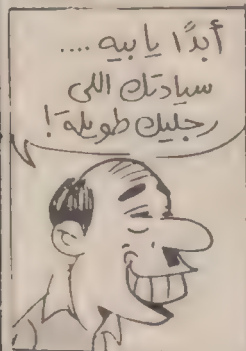 أبدًا يا بيه ....
سيادتك اللى
رجليك طويلة !